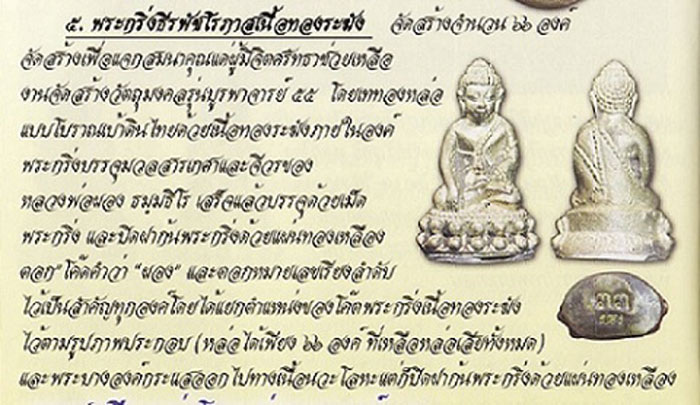 ๕. พระกริ่งธีรพัชโรภาสเนื้อทองระฆัง จัดสร้างจำนวน ๖๖ องค์
จัดสร้างเพื่อแจกสมนาคุณแด่ผู้มีจิตศรัทธาช่วยเหลือ
งานจัดสร้างวัตถุมงคลรุ่นบูรพาจารย์ ๕๕ โดยเททองหล่อ
แบบโบราณเบ้าดินไทยด้วยเนื้อทองระฆังภายในองค์
พระกริ่งบรรจุมวลสารเกศาและจีวรของ
หลวงพ่อผอง ธมฺมธีโร เสร็จแล้วบรรจุด้วยเม็ด
พระกริ่ง และปิดฝาก้นพระกริ่งด้วยแผ่นทองเหลือง
ตอก"โค๊ดคำว่า "ผอง" และตอกหมายเลขเรียงลำดับ
ไว้เป็นสำคัญทุกองค์โดยได้แยกตำแหน่งของโค๊ตพระกริ่งเนื้อทองระฆัง
ไว้ตามรูปภาพประกอบ (หล่อได้เพียง ๖๖ องค์ ที่เหลือหล่อเสียทั้งหมด)
และพระบางองค์กระแสออกไปทางเนื้อนวะโลหะแต่ก็ปิดฝาก้นพระกริ่งด้วยแผ่นทองเหลือง